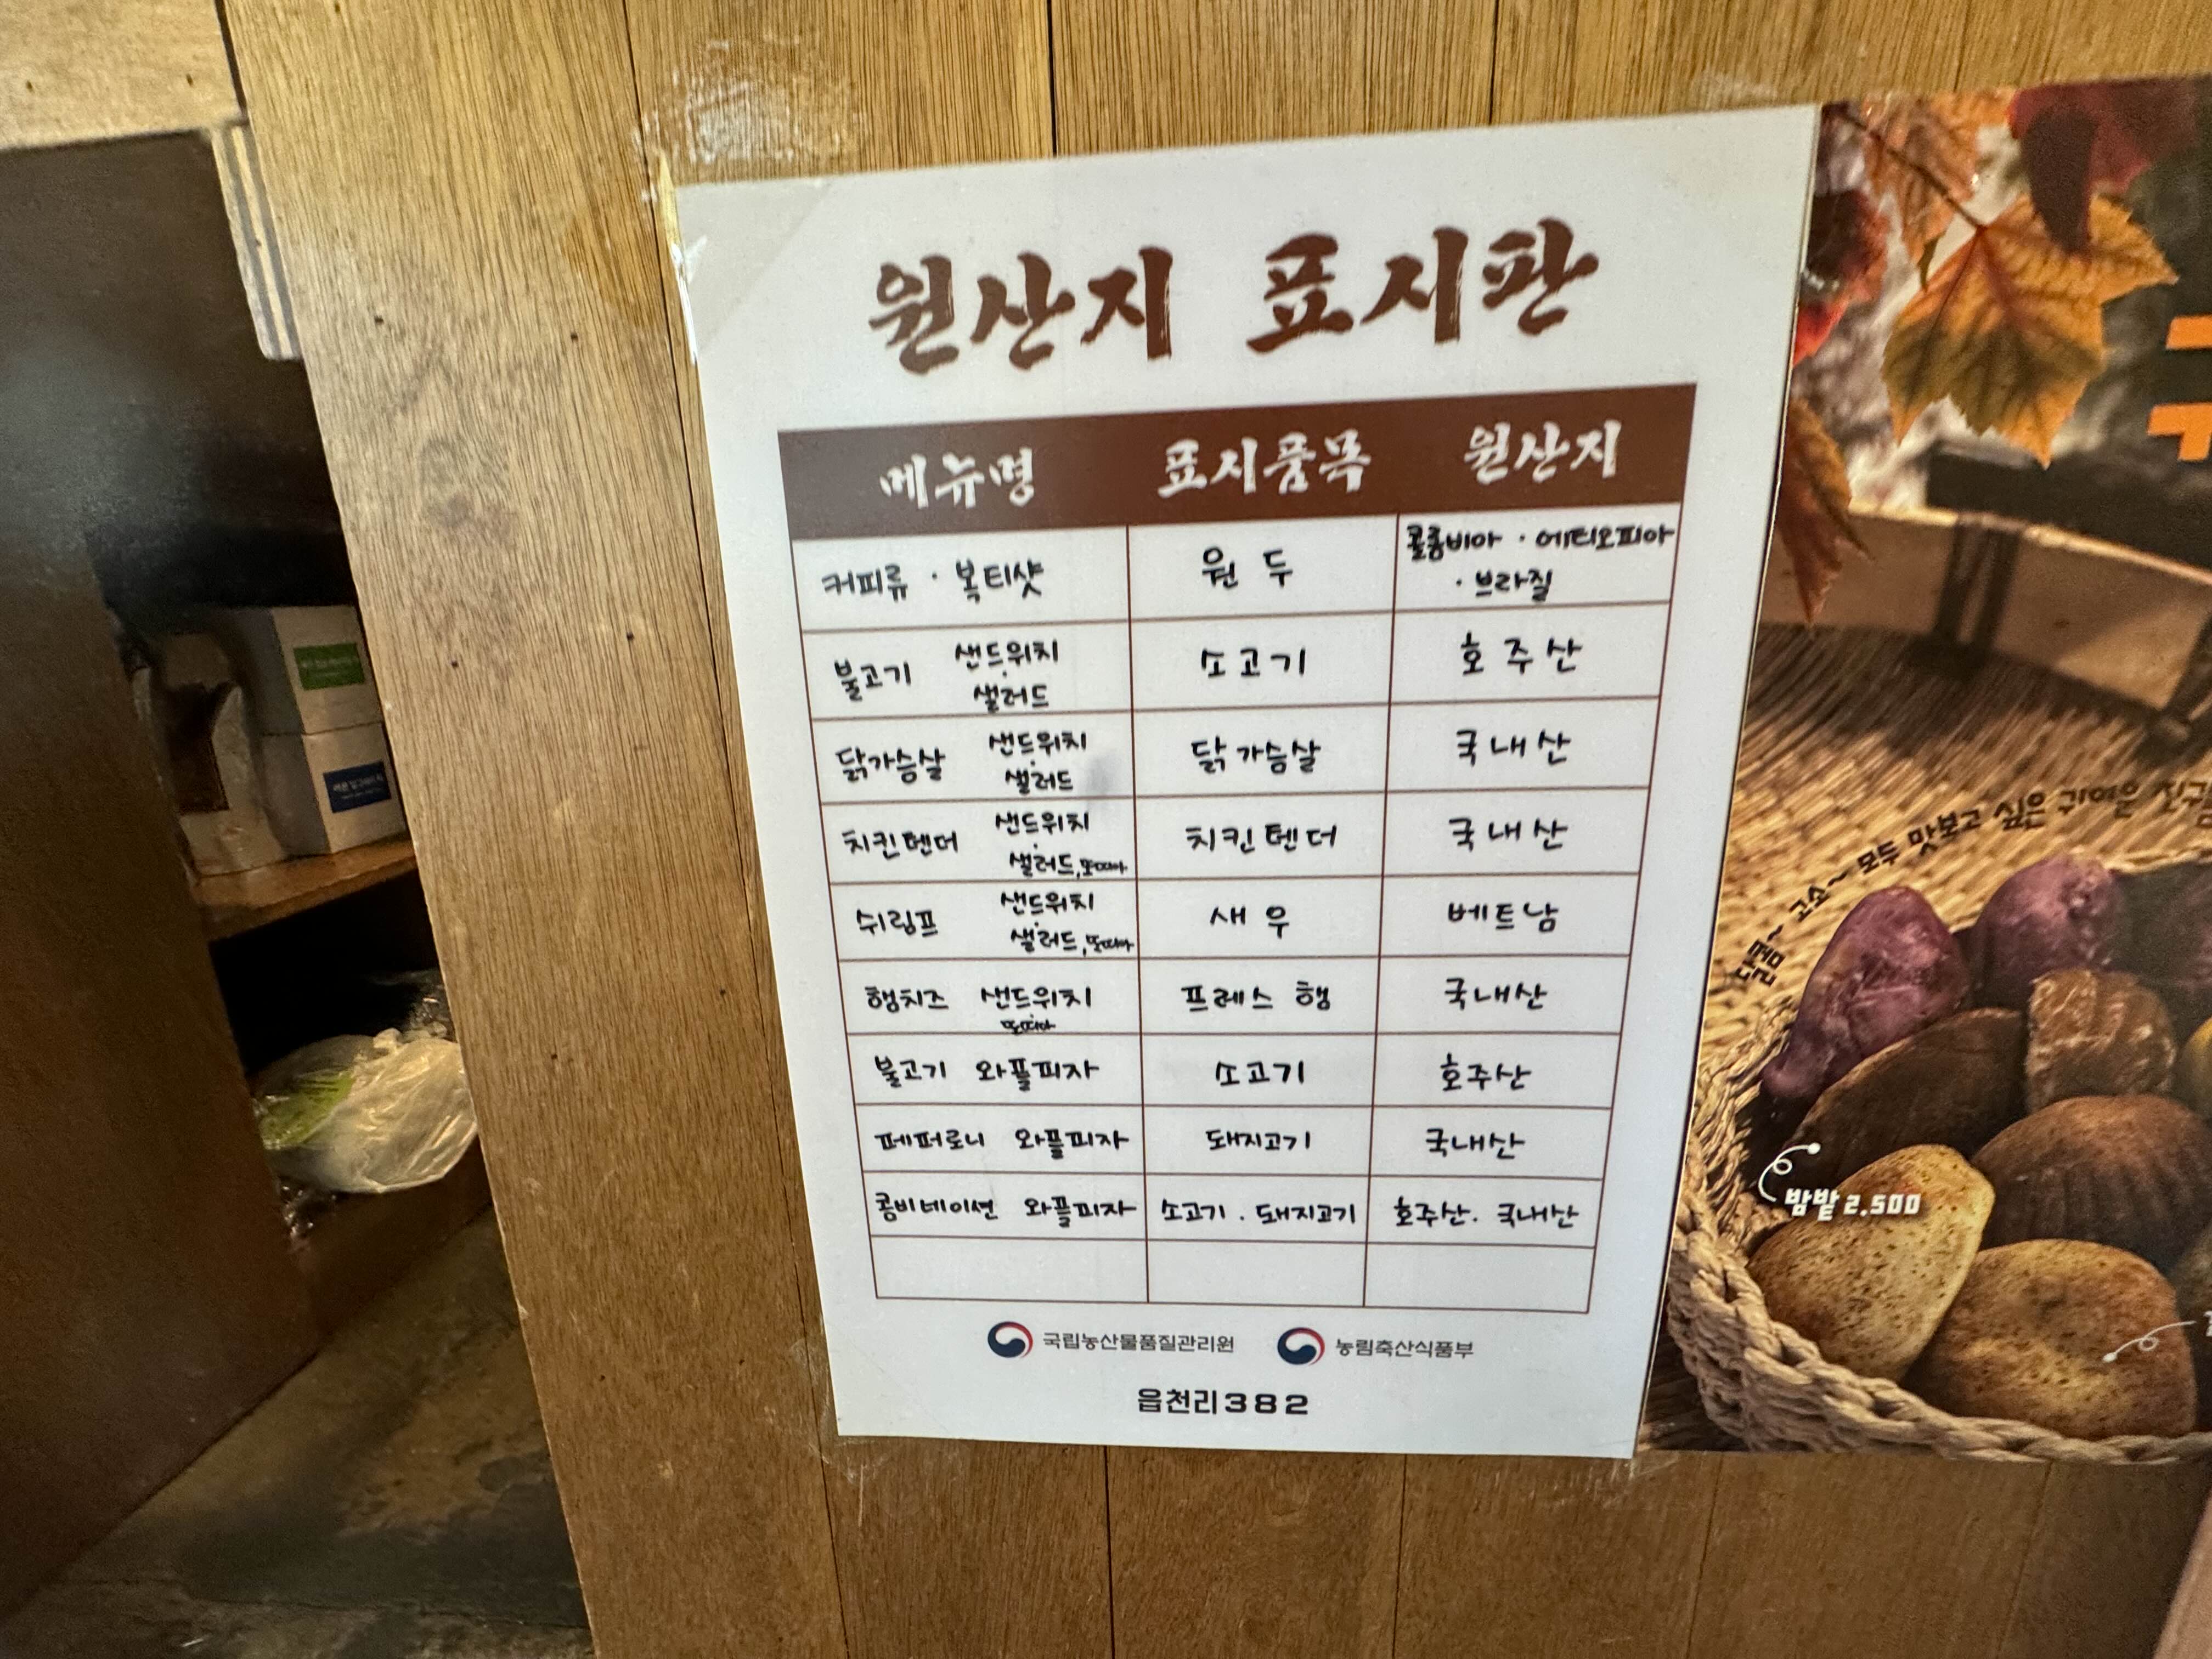 원산지 표시판
메뉴명 표시품목 원산지
커피류 · 복티샷 원두 콜롬비아 · 에티오피아
· 브라질
불고기 샌드위치 소고기 호주산
샐러드
닭가슴살 샌드위치 닭가슴살 국내산
샐러드
치킨텐더 샌드위치 치킨텐더 국내산
샐러드, 또띠아
쉬림프 샌드위치 새우 베트남
샐러드, 또띠아
햄치즈 샌드위치 프레스 햄 국내산
또띠아
불고기 와플피자 소고기 호주산
페퍼로니 와플피자 돼지고기 국내산
콤비네이션 와플피자 소고기 · 돼지고기 호주산 · 국내산
국립농산물품질관리원 농림축산식품부
읍천리382
달콤~ 고소~ 모두 맛보고 싶은 귀여운
밤밭 2,500